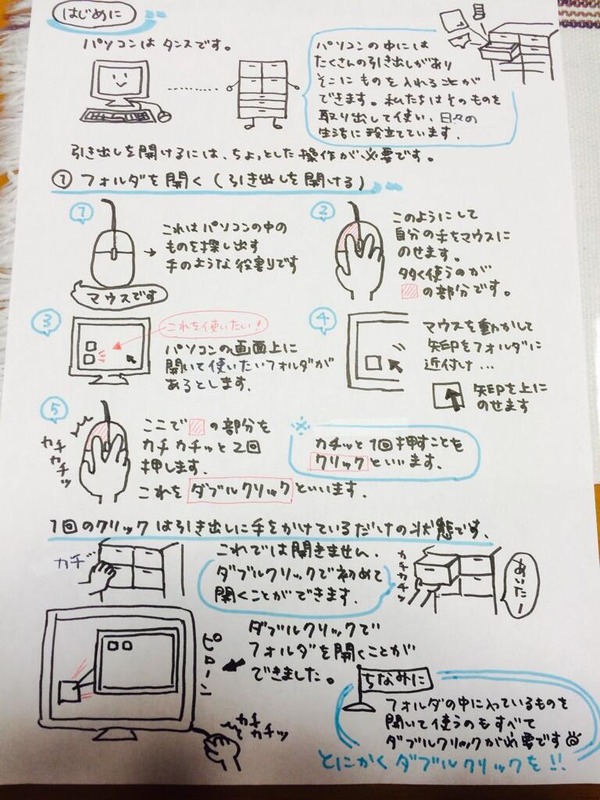 はじめに
パソコンはタンスです。
パソコンの中には
たくさんの引き出しがあり
そこにものを入れることが
できます。私たちはそのものを
取り出して使い、日々の
生活に役立てています。
引き出しを開けるには、ちょっとした操作が必要です。
① フォルダを開く(引き出しを開ける)
①
→ これはパソコンの中の
ものを探し出す
手のような役割りです
マウスです
②
このようにして
自分の手をマウスに
のせます。
多く使うのが
の部分です。
③
これを使いたい!
パソコンの画面上に
開いて使いたいフォルダが
あるとします。
④
マウスを動かして
矢印をフォルダに
近付け...
矢印を上に
のせます
⑤
カチ
カチッ
ここでの部分を
カチカチッと2回
押します。
これをダブルクリックといいます。
※
カチッと1回押すことを
クリックといいます。
1回のクリックは引き出しに手をかけているだけの状態です。
カチッ
これでは開きません。
ダブルクリックで初めて
開くことができます。
カチ
カチッ
あいた!
ダブルクリックで
フォルダを開くことが
できました。
カチ
カチッ
ちなみに
フォルダの中に入っているものを
開いて使うのもすべて
ダブルクリックが必要です
とにかくダブルクリックを!!